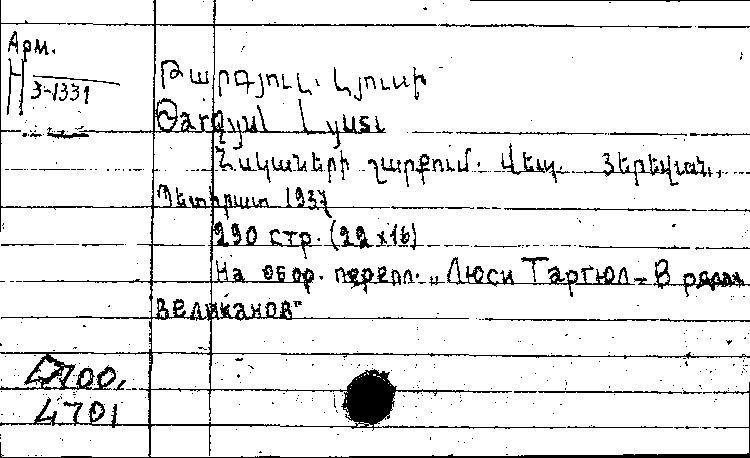 Арм.
Н
3-1331
Թարգյուլ. Լյուսի
Թargyul Lyusi
Հսկաների շարքում. Վեպ. Յերեվան,
Պետհրատ 1937
290 стр. (22x16)
На обор. перепл. „Люси Таргюл - В рядах
великанов"
4700,
4701